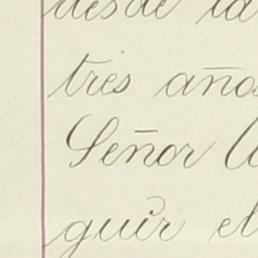 desde la
tres años
Señor
guir el